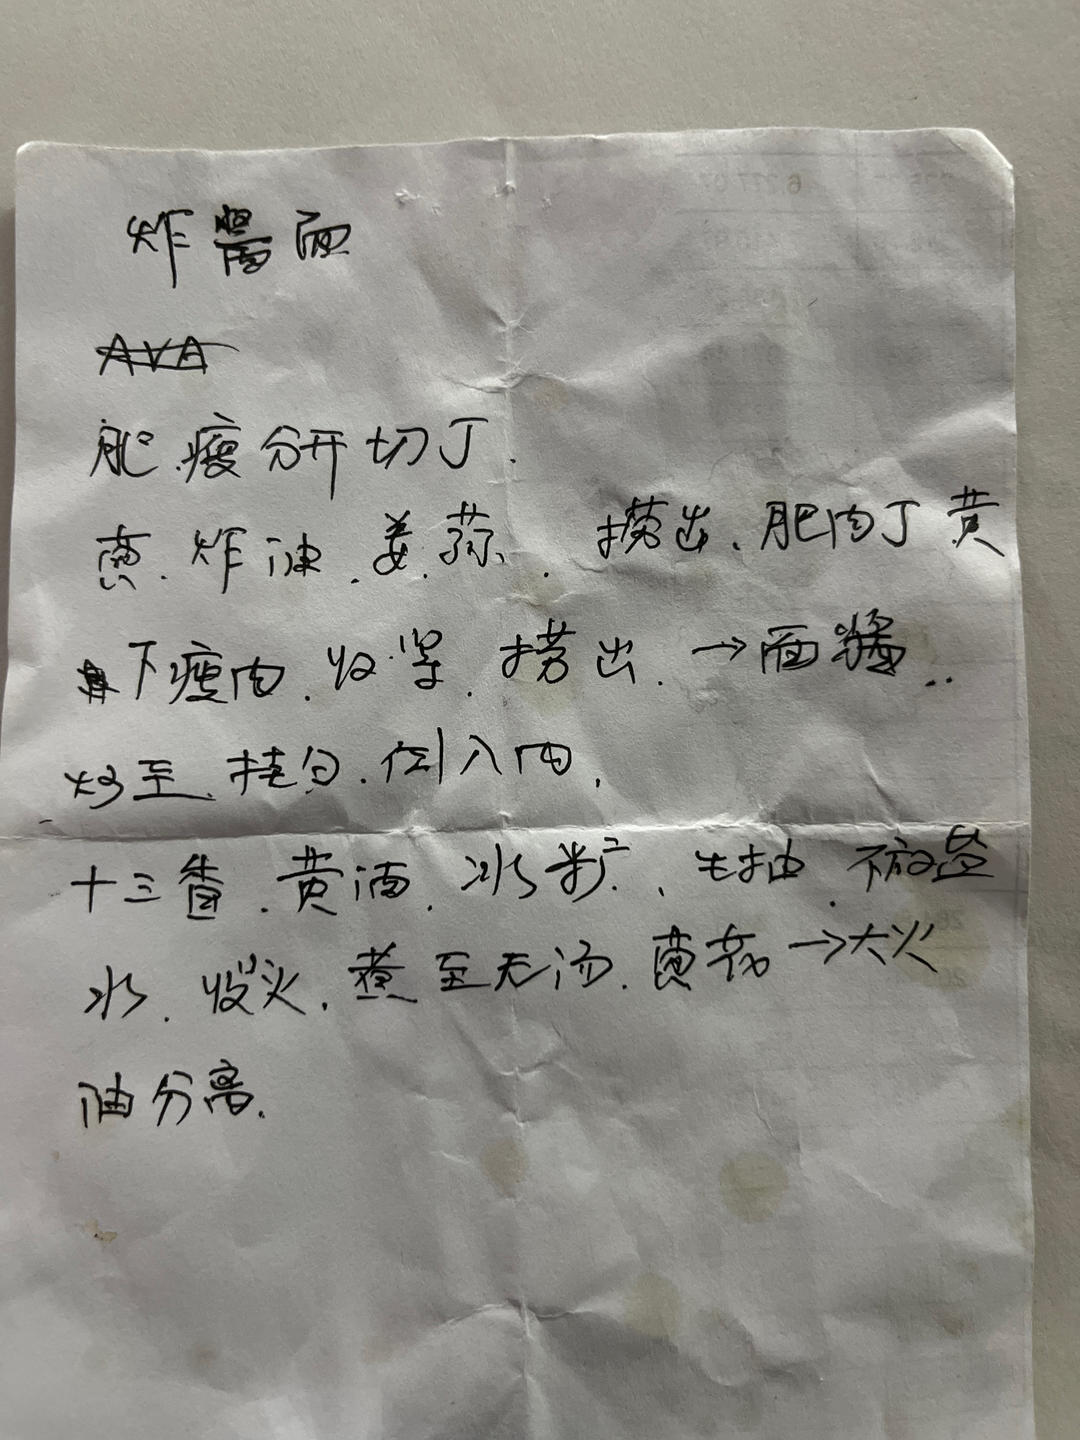 炸酱面
AVA
肥.瘦分开切丁.
葱.炸油.姜.蒜.捞出.肥肉丁黄
下瘦肉.收紧.捞出.→面酱..
炒至.挂勺.倒入肉.
十三香.黄酒.冰糖.、生抽.不放盐
水.慢火.煮至无汤.葱花→大火
油分离.